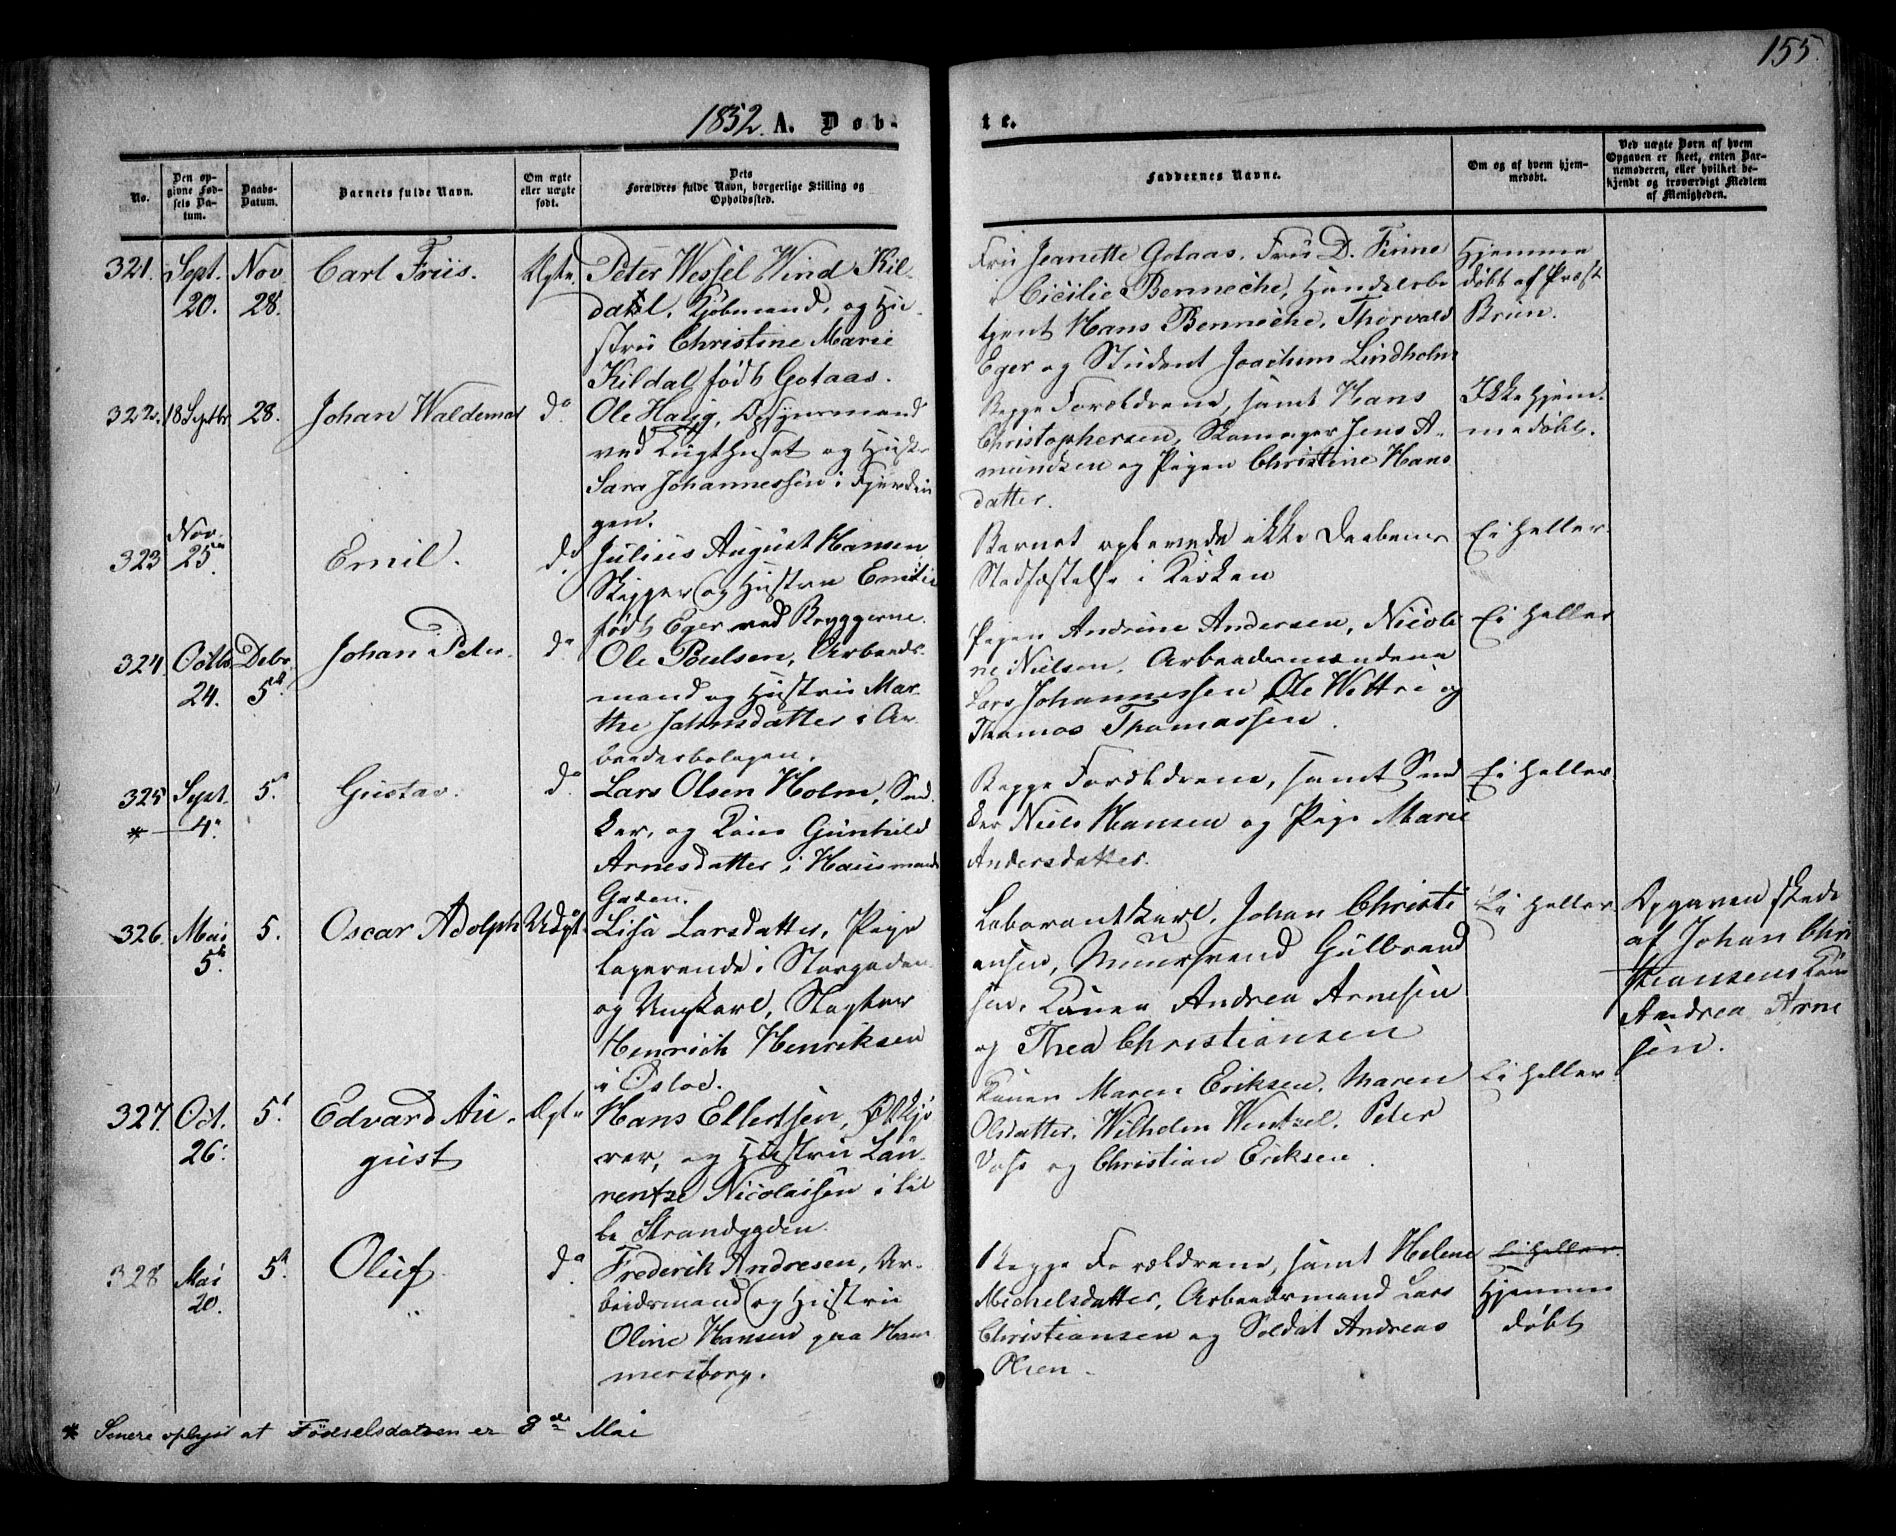 155.
1852. A. Døb-
te.
No.
Den op-
givne Fød-
sels Da-
tum.
Daabs-
Datum.
Barnets fulde Navn.
Om ægte
eller uægte
født.
Dets
Forældres fulde Navn, borgerlige Stilling og
Opholdssted.
Faddernes Navne.
Om og af hvem hjem-
medøbt.
Ved uægte Børn af hvem
Opgaven er skeet, enten Bar-
nemoderen, eller hvilket be-
kjendt og troværdigt Medlem
af Menigheden.
321. Sept. 20. Nov. 28. Carl Friis. Ægte.
Peter Wessel Wind Kil-
dahl, Kjøbmand, og Hu-
stru Christine Marie
Kildal født Gotaas.
Fru Jeanette Gotaas, Fru D. Finne
Cicilie Benneche, Handelsbe
tjent Hans Benneche, Thorvald
Eger og Student Joachim Lindholm
Hjemme
døbt af Præst
Brun.
322. 18 Septbr. 28. Johan Waldemar do
Ole Haug, Opsynsmand
ved Tugthuset og Hustru
Sara Johannessen i Fjerdin
gen.
Begge Forældrene, samt Hans
Christophersen, Skomager Jens A-
mundsen og Pigen Christine Hans
datter.
Ikke hjem-
medøbt.
323 Nov. 25 Emil. do
Julius August Hansen
Skipper og Hustru Emilie
født Eger ved Bryggerne.
Barnet oplevede ikke Daabens
Stadfæstelse i Kirken
Ei heller.
324. Octb. 24. Debr. 5. Johan Peter. do
Ole Poulsen, Arbeids-
mand og Hustru Mar-
the Jahnsdatter i Ar-
beiderboligen.
Pigen Andrine Andersen, Nicoli
ne Nielsen, Arbeidsmændene
Lars Johannessen Ole Wittri og
Thomas Thomassen.
Ei heller
325 Sept. 4. 5. Gustav. do
*
Lars Olsen Holm, Snd.
ker, og Kone Gunhild
Arnesdatter i Hausmands
Gaden.
Begge Forældrene, samt Snd
ker Niels Hansen og Pige Marie
Andersdatter.
Ei heller
326. Mai 5. 5. Oscar Adolph Uægte.
Lisa Larsdatter, Pige
logerende i Storgaden
og Ungkarl, Slagter
Henrich Henriksen
i Osloe.
Laborantkarl, Johan Christi
ansen, Muursvend Gulbrand
sen, Konen Andrea Arnesen
og Thea Christiansen
Ei heller
Opgaven skede
af Johan Chri
stiansens Kone
Andrea Arne
sen.
327. Oct. 26. 5. Edvard Au-
gust Ægte
Hans Ellertsen, Ølkjø
rer, og Hustru Lau-
rentze Nicolaisen i lil
le Strandgaden.
Konen Maren Eriksen, Maren
Olsdatter, Wilhelm Wentzel, Peter
Voss og Christian Eriksen.
Ei heller
328 Mai 20. 5. Oluf do
Frederik Andresen, Ar-
beidsmand og Hustru
Oline Hansen paa Ham
mersborg.
Begge Forældrene, samt Helene
Michelsdatter, Arbeidsmand Lars
Christiansen og Soldat Andreas
Olsen.
Ei heller.
Hjemme
døbt
* Senere oplyst at Fødselsdatoen er 8de Mai